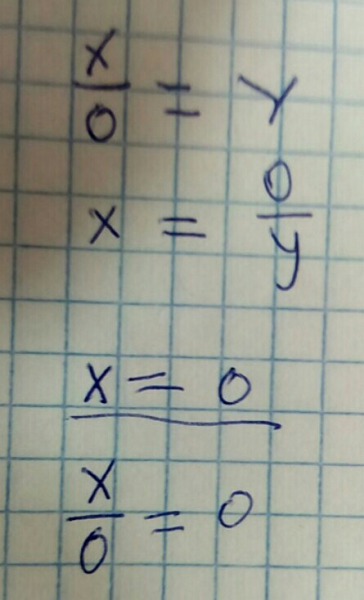 x/0 = y
x = 0/y
x = 0
x/0 = 0